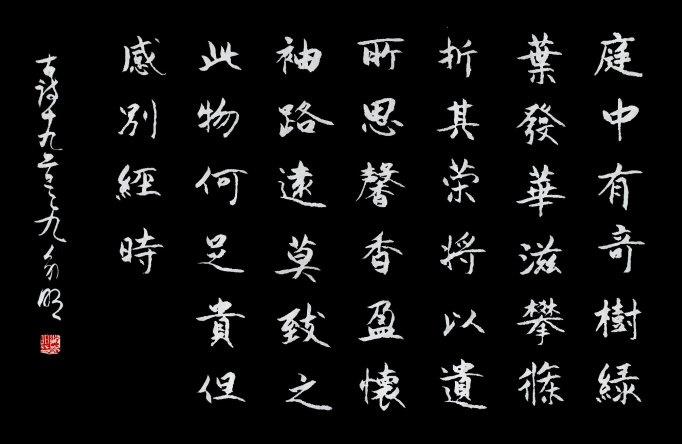 庭中有奇樹緑
葉發華滋攀條
折其荣將以遺
所思馨香盈懷
袖路遠莫致之
此物何足貴但
感別經時
古詩十九首之九 明